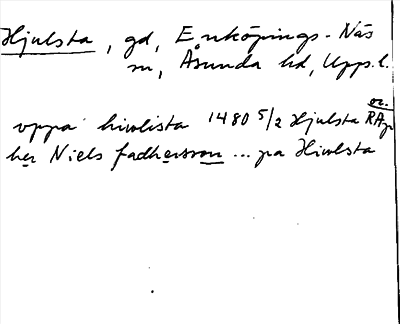 Hjulsta, gd, Enköpings-Näs
sn, Åsunda hd, Upps.l.
or.
vppa hiwlista 1480 5/2 Hjulsta RAp
her Niels fadhersson ... pa Hiwlsta